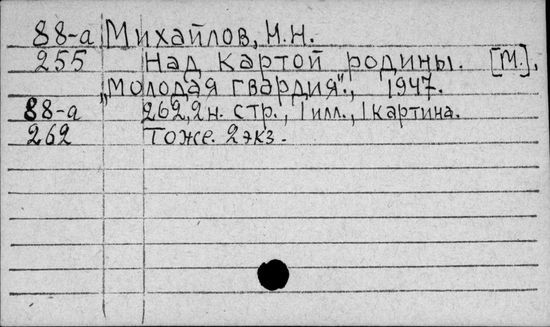 88-а Михайлов, Н.Н.
255 Над картой родины. [М.],
„Молодая гвардия"., 1947.
88-а 262, 2н. стр., 1 илл., 1 картина.
262 Тоже. 2экз.